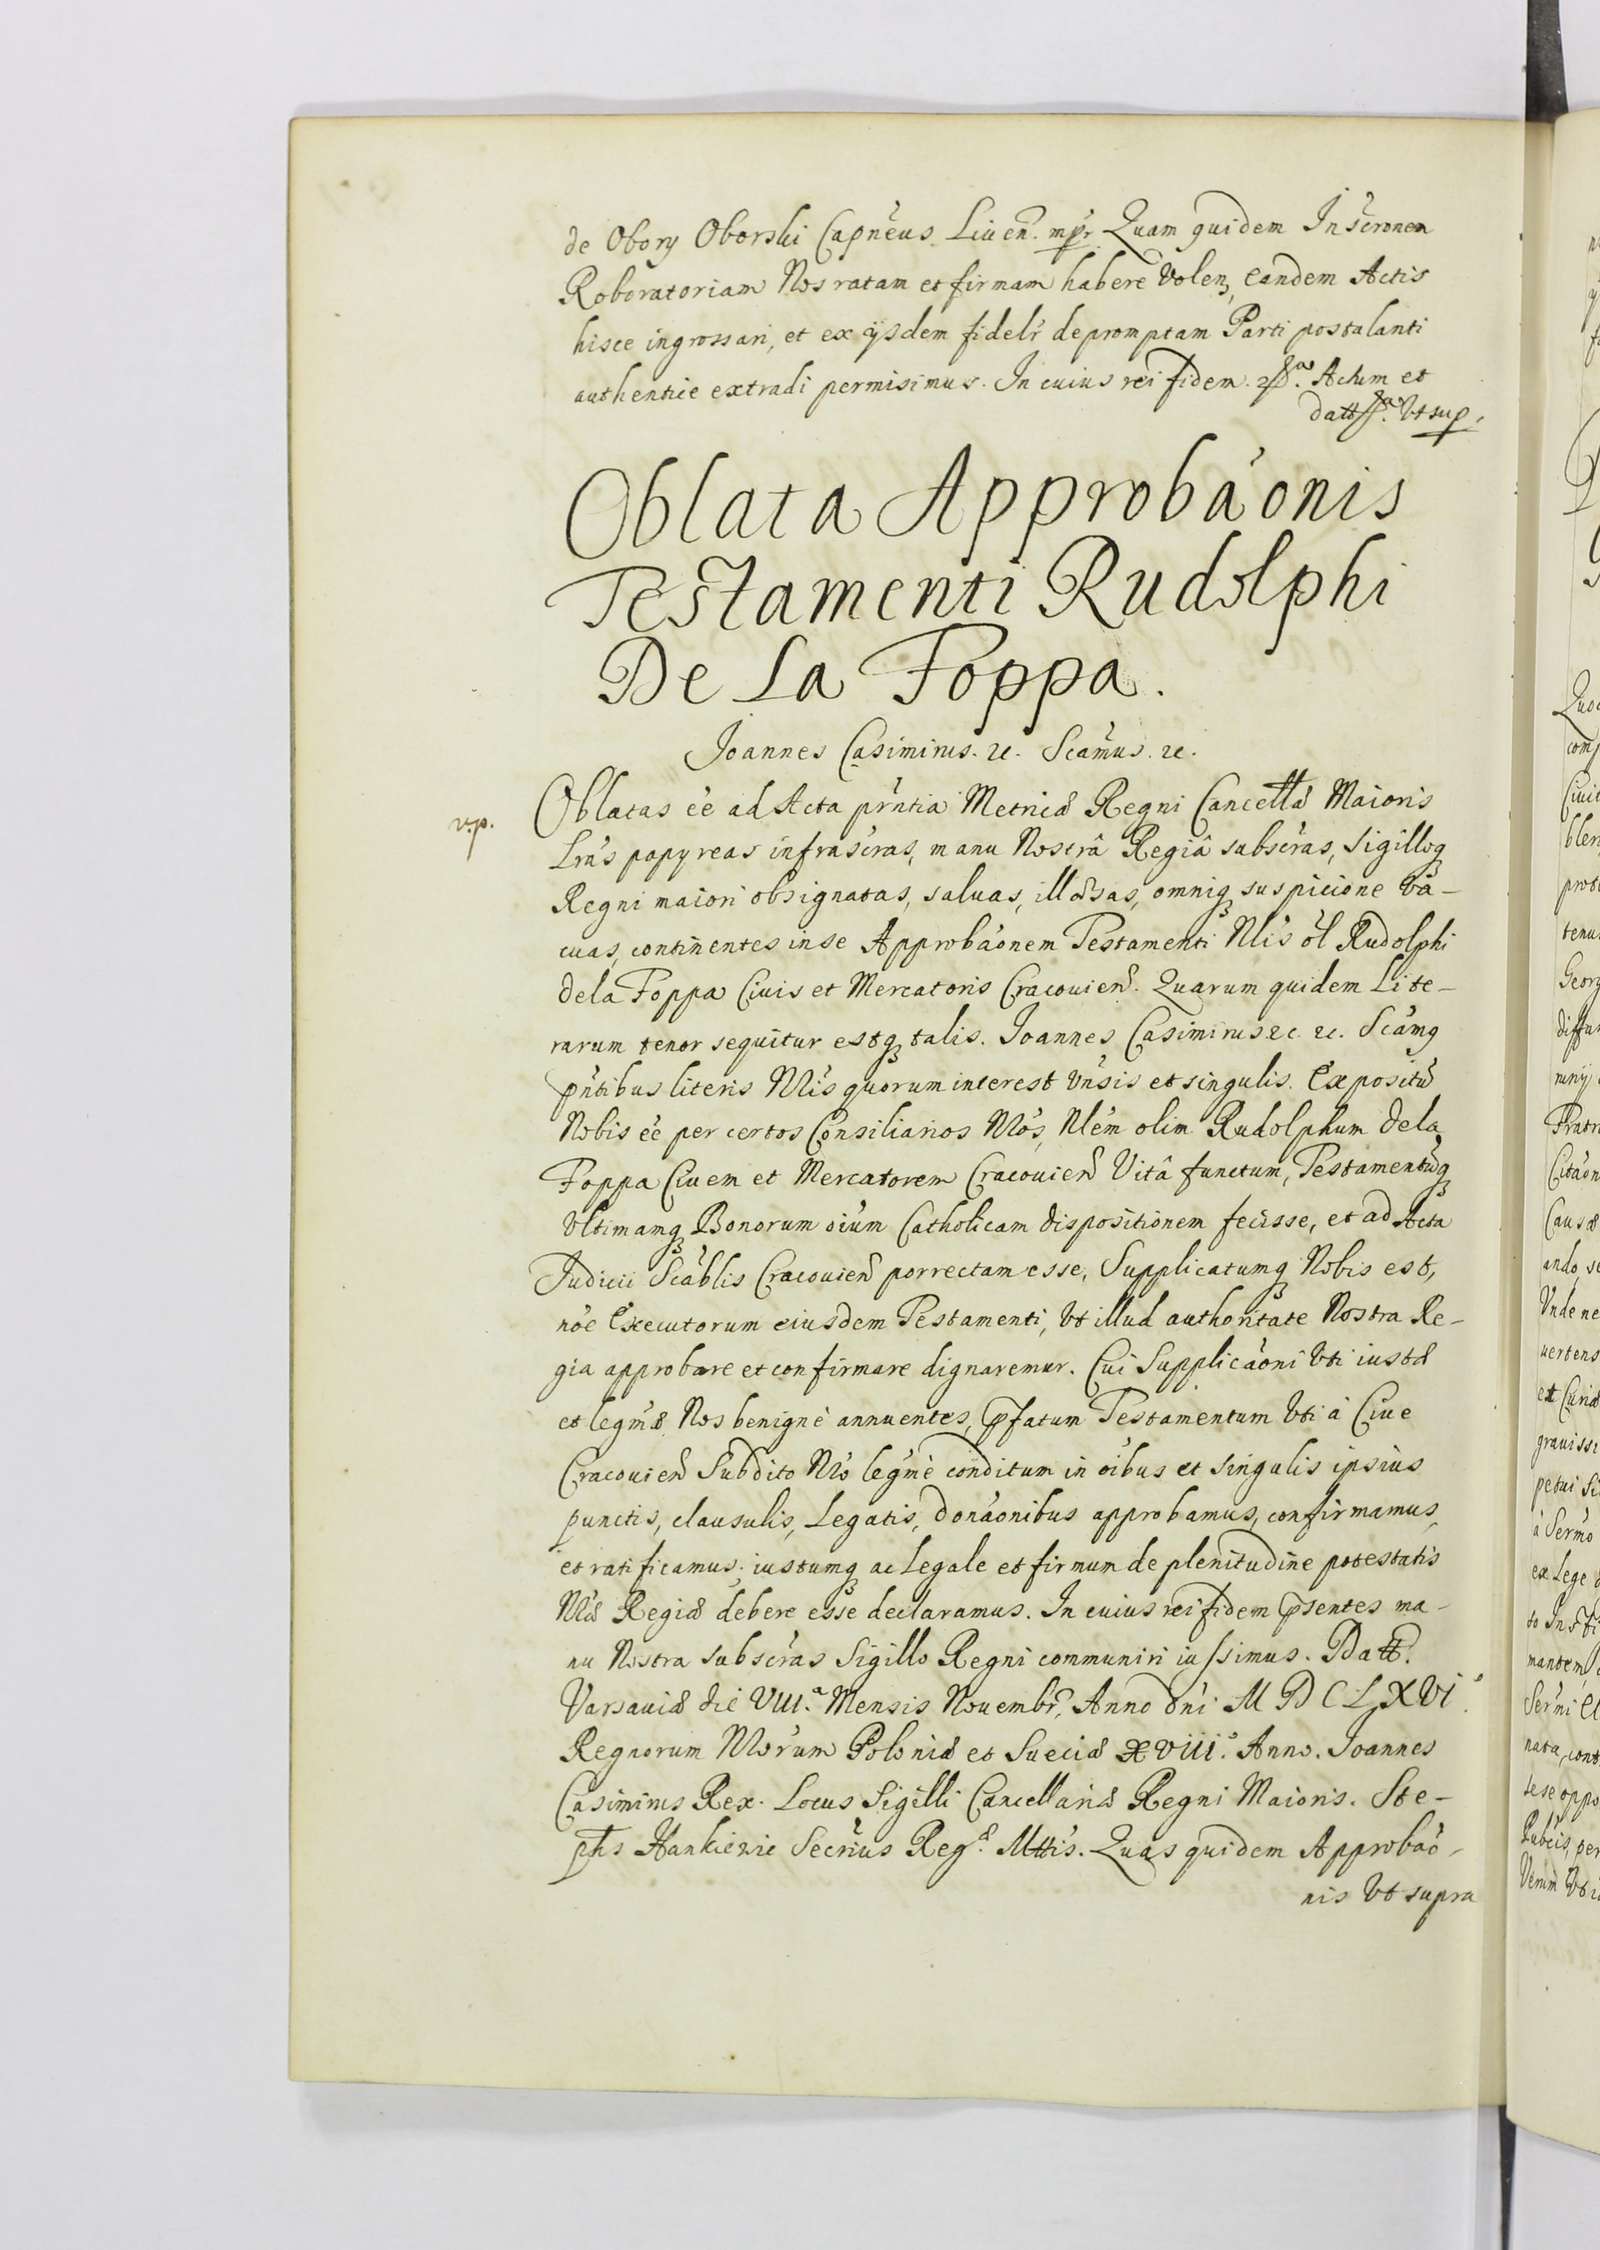 de Obory Oborski Capneus Liuen. mpr Quam quidem Inscronem
Roboratoriam Nos ratam et firmam habere Volen, eandem Actis
hisce ingrossari, et ex ijsdem fidelr depromptam Parti postulanti
authentice extradi permisimus. In cuius rei fidem. Actum et
datt Vt sup.
Oblata Approbáonis
Testamenti Rudolphi
De La Foppa.
Joannes Casimirus. &c. Scámus. &c.
v.p.
Oblatas ée ad Acta prńtia Metricæ Regni Cancellæ Maioris
Lrás papyreas infrascras, manu Nostrâ Regiâ subscras, Sigilloq
Regni maiori obsignatas, saluas, illæsas, omniq suspicione Va-
cuas, continentes in se Approbáonem Testamenti Nlis ol Rudolphi
de la Foppa Ciuis et Mercatoris Cracouien. Quarum quidem Lite-
rarum tenor sequitur estq talis. Joannes Casimirus &c. &c. Scámq
pńtibus literis Nris quorum interest Vnsis et singulis. Expositũ
Nobis ée per certos Consiliarios Nrós, Nlem olim Rudolphum de la
Foppa Ciuem et Mercatorem Cracouien Vitâ functum, Testamentũq
Vltimamq Bonorum oium Catholicam dispositionem fecisse, et ad Acta
Judicii Scáblis Cracouien porrectam esse, Supplicatumq Nobis est,
nóe Executorum eiusdem Testamenti, Vt illud authoritate Nostra Re-
gia approbare et confirmare dignaremur. Cui Supplicáoni Vti iustæ
et legmæ Nos benignè annuentes, pfatum Testamentum Vti à Ciue
Cracouien Subdito Nró legmè conditum in oibus et singulis ipsius
punctis, clausulis, Legatis, donáonibus approbamus, confirmamus,
et ratificamus, iustumq ac Legale et firmum de plenitudine potestatis
Nræ Regiæ debere esse declaramus. In cuius rei fidem psentes ma-
nu Nostra subscras Sigillo Regni communiri iussimus. Datt.
Varsauiæ die VIII.ª Mensis Nouembr, Anno Dni M D C L X VI.
Regnorum Nrórum Poloniæ et Sueciæ XVIII.º Anno. Joannes
Casimirus Rex. Locus Sigilli Cancellariæ Regni Maioris. Ste-
phs Hankiewic Secrius Regæ Mttis. Quas quidem Approbáo-
nis Vt supra